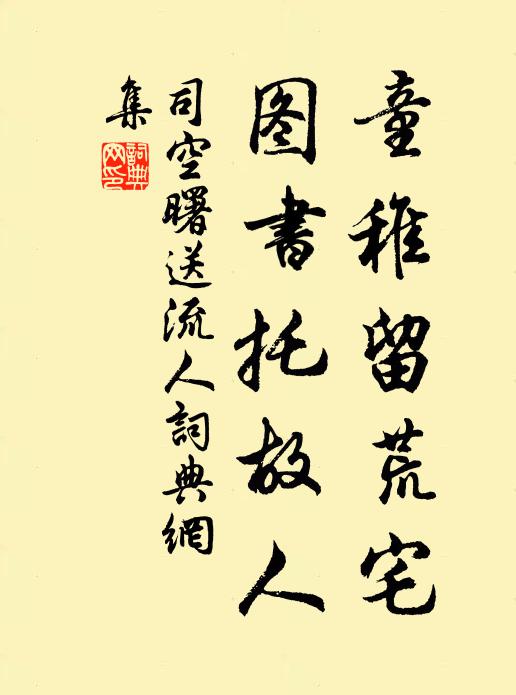 童稚留荒宅
图书托故人
司空曙送流人詞典網
集
詞典
网印